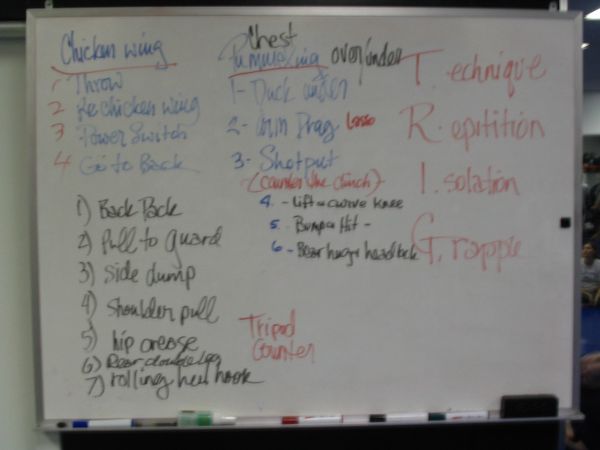 Chicken wing
1 Throw
2 Re chicken wing
3 Power Switch
4 Go to Back
1) Back Pack
2) Pull to guard
3) side dump
4) shoulder pull
5) hip crease
6) Rear double leg
7) rolling heel hook
Chest
Pummeling over/under
1- Duck under
2- Arm Drag Lasso
3- Shotput
(counter the clinch)
4. - Lift = curve knee
5. Bump = Hit -
6 - Bear hug = headlock
Tripod
Counter
T. echnique
R. epitition
I. solation
G. rapple